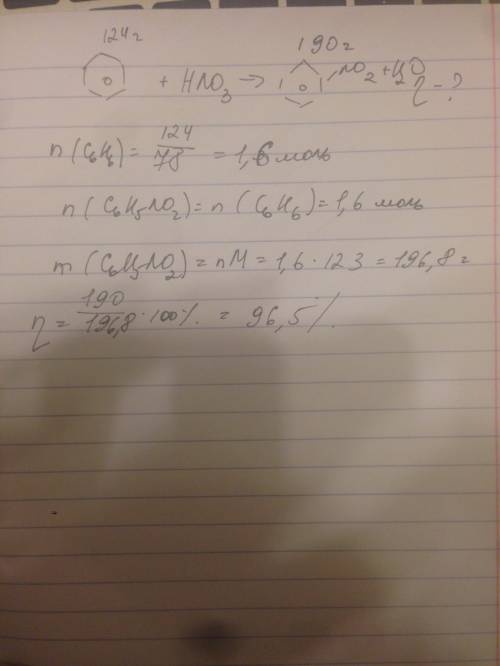 124 г 190 г
+ HNO3 → NO2 + H2O η - ?
n (C6H6) = 124/78 = 1,6 моль
n (C6H5NO2) = n (C6H6) = 1,6 моль
m (C6H5NO2) = nM = 1,6 · 123 = 196,8 г
η = 190/196,8 · 100% = 96,5%.